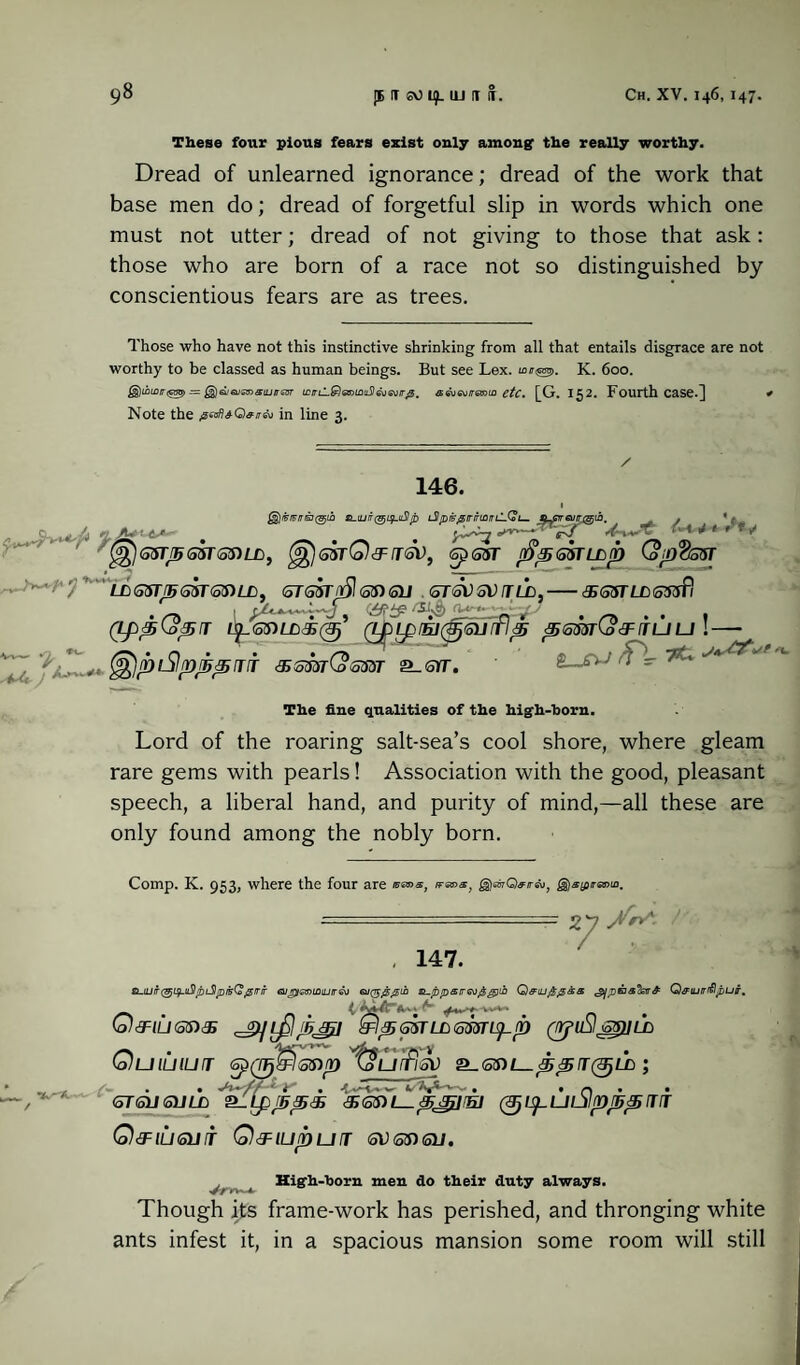 98 நாலடியார். CH. XV. 146, 147.
These four pious fears exist only among the really worthy.
Dread of unlearned ignorance; dread of the work that
base men do; dread of forgetful slip in words which one
must not utter; dread of not giving to those that ask:
those who are born of a race not so distinguished by
conscientious fears are as trees.
Those who have not this instinctive shrinking from all that entails disgrace are not
worthy to be classed as human beings. But see Lex. மாணா. K. 600.
இம்மாணா = இவ்வகையான மாட்சிமையில்லாத. கல்லாமை etc. [G. 152. Fourth case.]
Note the தனிச்சொல் in line 3.
146.
இந்நான்கும் உயர்குடியிற் பிறந்தார்மாட்டே உளவாகும்.
இனநன்மை, இன்சொல், ஒன் றீதன்மற் றேனை
மனநன்மை, என்றிவை எல்லாம்,—கனமணி
முத்தோ டிமைக்கு முழங்குவரித் தண்சேர்ப்ப!—
இற்பிறந்தார் கண்ணே உள.
The fine qualities of the high-born.
Lord of the roaring salt-sea's cool shore, where gleam
rare gems with pearls! Association with the good, pleasant
speech, a liberal hand, and purity of mind,—all these are
only found among the nobly born.
Comp. K. 953, where the four are நகை, ஈகை, இன்சொல், இகழாமை.
27
147.
உயர்குடியிற்பிறந்தோர் வறுமையால் வருத்தம் உற்றகாலத்தும் செயத்தக்க அறங்களைச் செயாநிற்பர்.
செய்கை அழிந்து சிதன்மண்டிற் றாயினும்
பெய்யா ஒருசிறை பேரில் உடைத்தாகும் ;
எவ்வம் உழந்தக் கடைத்துங் குடிப்பிறந்தார்
செய்வர் செயற்பா லவை.
High-born men do their duty always.
Though its frame-work has perished, and thronging white
ants infest it, in a spacious mansion some room will still